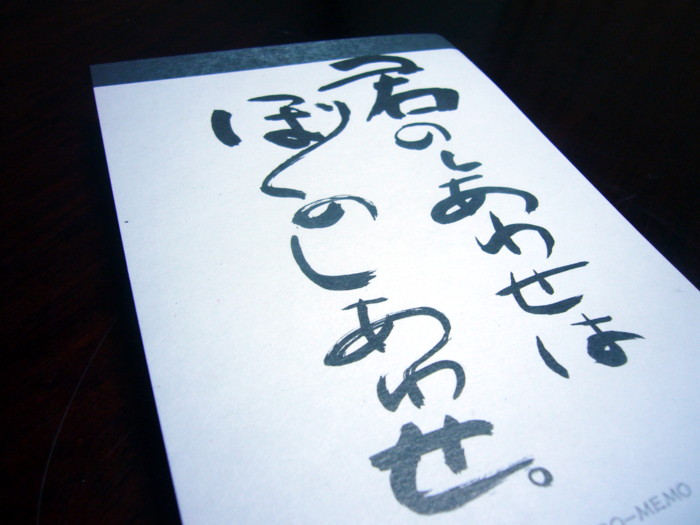 君のしあわせは
ぼくのしあわせ。
O-MEMO